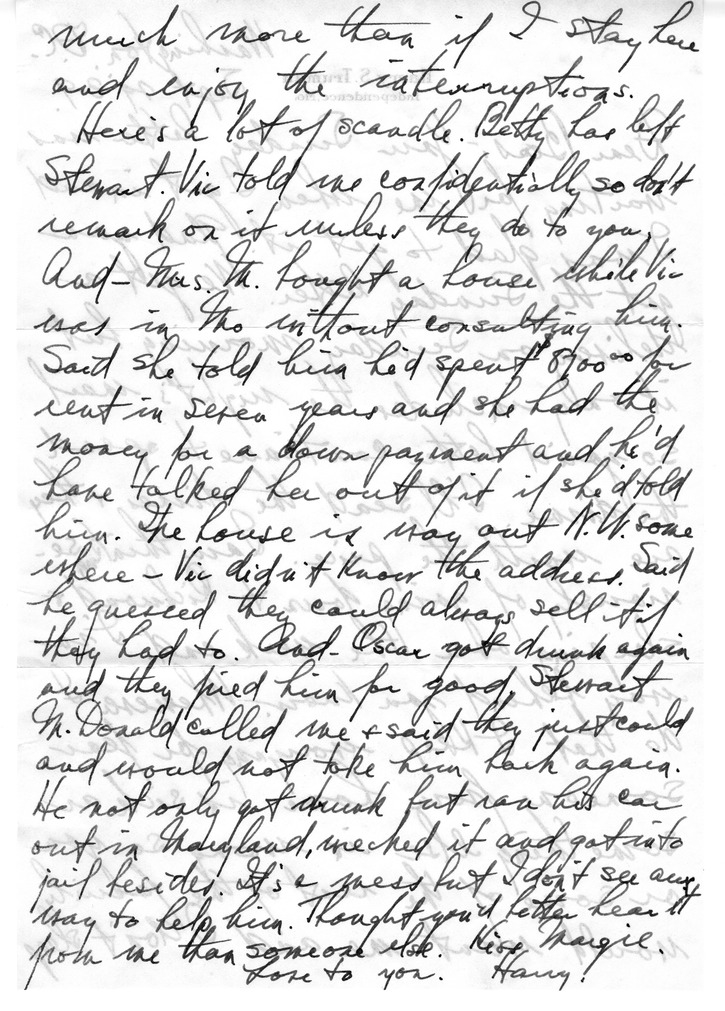 much more than if I stay here
and enjoy the interruptions.
Here's a lot of scandle. Betty has left
Stewart. Vic told me confidentially so don't
remark on it unless they do to you.
And - Mrs. M. bought a house while Vic
was in Mo without consulting him.
Said she told him he'd spent $8700.00 for
rent in seven years and she had the
money for a down payment and he'd
have talked her out of it if she'd told
him. The house is way out N.W. some
where - Vic didn't know the address. Said
he guessed they could always sell it if
they had to. And - Oscar got drunk again
and they fired him for good. Stewart
McDonald called me + said they just could
and would not take him back again.
He not only got drunk but ran his car
out in Maryland, wrecked it and got into
jail besides. It's a mess but I don't see any
way to help him. Thought you'd better hear it
from me than someone else. Kiss Margie.
Love to you. Harry.